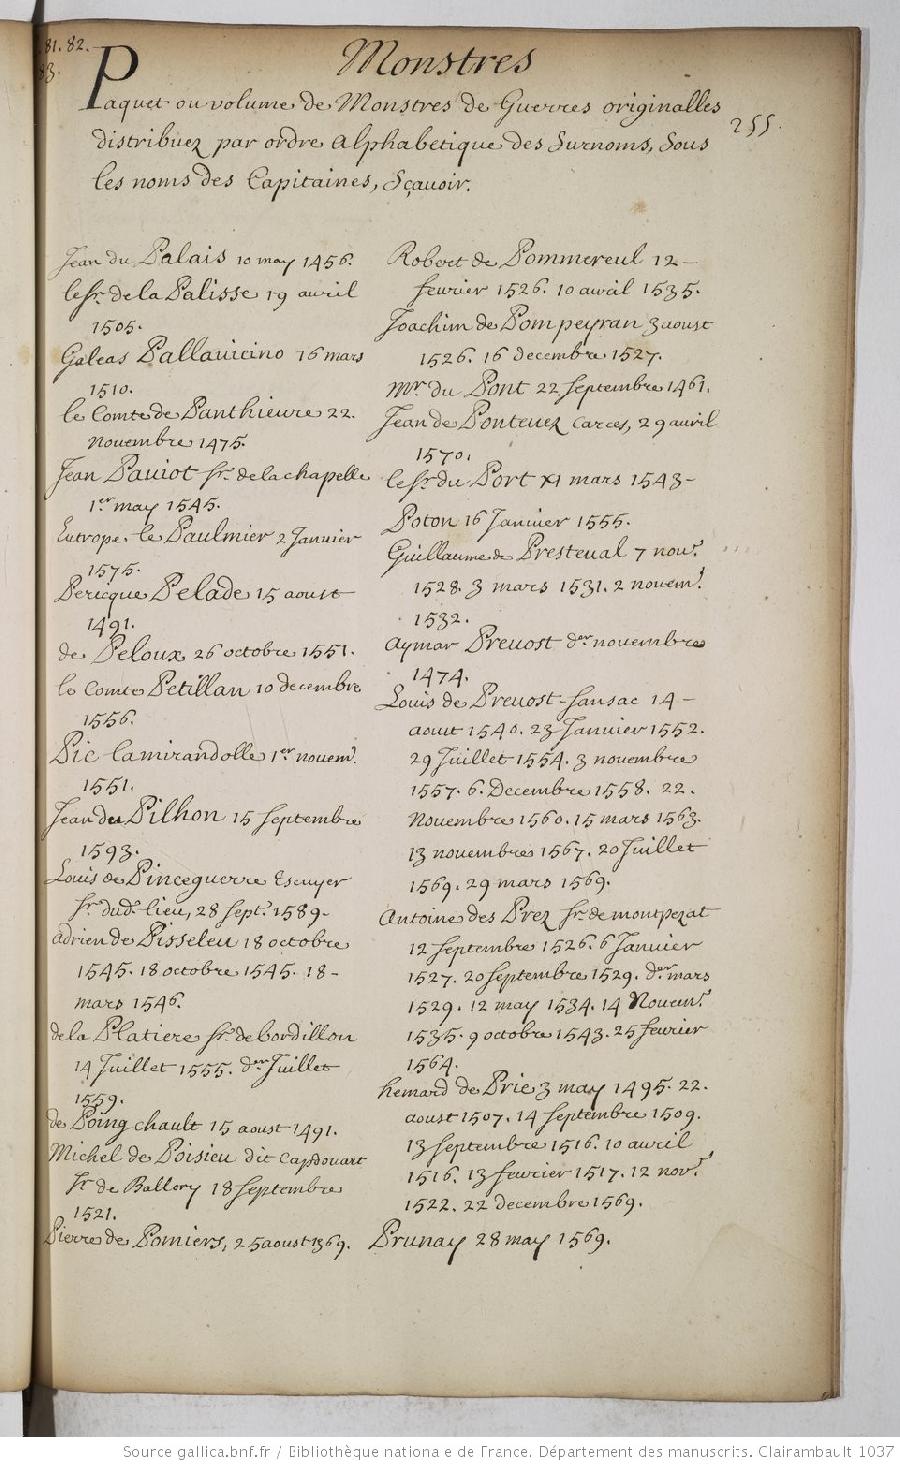 81. 82.
83.
Monstres
Paquet ou volume de Monstres de Guerres originalles
255.
distribuez par ordre alphabetique des Surnoms, Sous
les noms des Capitaines, Sçauoir.
Jean du Palais 10 may 1456.
le Sr. de la Palisse 19 auril
1505.
Galeas Pallauicino 16 mars
1510.
le Comte de Panthieure 22.
Novembre 1475.
Jean Pauiot Sr. de la chapelle
1er may 1545.
Eutrope le Paulmier 2 Januier
1575.
Pericque Pelade 15 aoust
1491.
de Peloux 26 octobre 1551.
le Comte Petillan 10 decembre
1556.
Pic lamirandolle 1er novem.
1551.
Jean du Pilhon 15 Septembre
1593.
Louis de Pinceguerre Escuyer
Sr. dud. lieu, 28 Sept. 1589-
adrien de Pisseleu 18 octobre
1545. 18 octobre 1545. 18-
mars 1546.
de la Platiere Sr. de bordillon
14 Juillet 1555. der Juillet
1559.
de Poing chault 15 aoust 1491.
Michel de Poisieu dit Capdouart
Sr. de Ballery 18 Septembre
1521.
Pierre de Pomiers, 25 aoust 1369.
Robert de Pommereul 12-
feurier 1526. 10 auril 1535.
Joachim de Pompeyran 3 aoust
1526. 16 decembre 1527.
Mr. du Pont 22 Septembre 1461.
Jean de Ponteuez Carces, 29 auril
1570.
le Sr. du Port XI mars 1543-
Poton 16 Januier 1555.
Guillaume de Presteual 7 nou.
1528. 3 mars 1531. 2 novem.
1532.
aymar Preuost der novembre
1474.
Louis de Preuost-Sansac 14-
aout 1540. 23 Januier 1552.
29 Juillet 1554. 3 novembre
1557. 6. Decembre 1558. 22.
Novembre 1560. 15 mars 1563.
13 novembre 1567. 20 Juillet
1569. 29 mars 1569.
Antoine des Prez Sr. de montpezat
12 Septembre 1526. 6 Januier
1527. 20 Septembre 1529. der mars
1529. 12 may 1534. 14 Novem.
1535. 9 octobre 1543. 25 feurier
1564.
hemard de Prie 3 may 1495. 22.
aoust 1507. 14 Septembre 1509.
13 Septembre 1516. 10 auril
1516. 13 feurier 1517. 12 nov.
1522. 22 decembre 1569.
Prunay 28 may 1569.
Source gallica.bnf.fr / Bibliothèque nationale de France. Département des manuscrits. Clairambault 1037